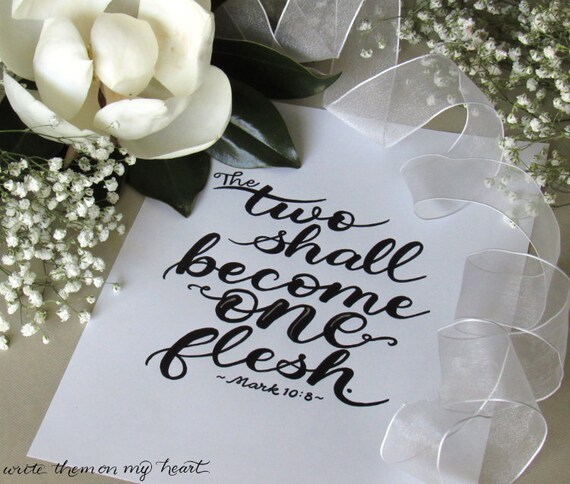 The
two
shall
become
one
flesh.
~Mark 10:8~
write them on my heart